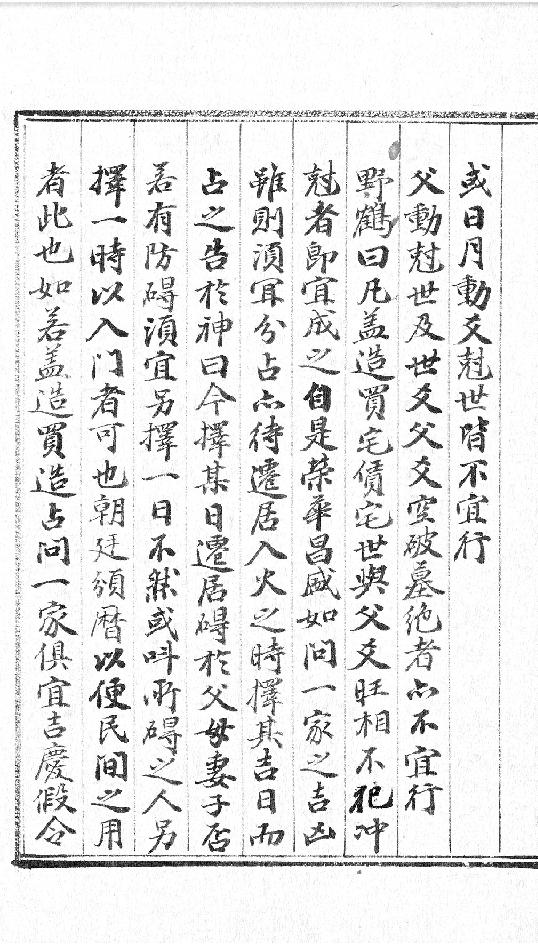 或日月動爻尅世皆不宜行
父動尅世及世爻父爻空破墓绝者亦不宜行
野鶴曰凡盖造買宅賃宅世與父爻旺相不犯冲
尅者即宜成之自是荣華昌盛如问一家之吉凶
雖則須冝分占亦待遷居入火之時擇其吉日而
占之告於神曰今擇某日遷居碍於父母妻子否
若有防碍須宜另擇一日不然或呌所碍之人另
擇一時以入门者可也朝廷頒曆以便民间之用
者此也如若盖造買造占问一家俱宜吉慶假令